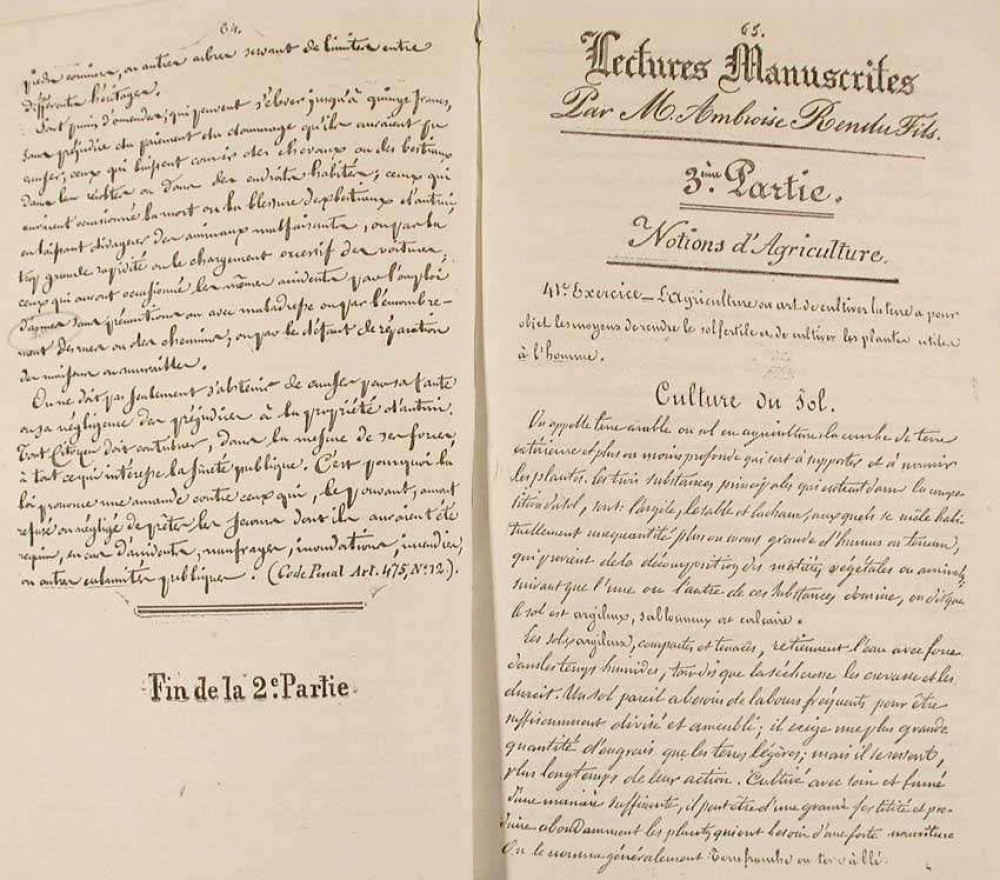 64.
pieds corniers, ou autres arbres servant de limites entre
différents héritages.
Sont punis d'amendes, qui peuvent s'élever jusqu'à quinze francs,
sans préjudice du paiement du dommage qu'ils auraient pu
causer, ceux qui laissent courir des chevaux ou des bestiaux
dans les rues ou dans des endroits habités; ceux qui
auraient occasionné la mort ou la blessure des bestiaux d'autrui
en laissant divaguer des animaux malfaisants, ou par la
trop grande rapidité ou le chargement excessif des voitures;
ceux qui auront occasionné les mêmes accidents par l'emploi
d'armes sans précautions ou avec maladresse ou par l'encombre-
ment des rues ou des chemins, ou par le défaut de réparation
des maisons ou murailles.
On ne doit pas seulement s'abstenir de causer par sa faute
ou sa négligence des préjudices à la propriété d'autrui.
Tout Citoyen doit contribuer, dans la mesure de ses forces,
à tout ce qui intéresse la sûreté publique. C'est pourquoi la
loi prononce une amende contre ceux qui, le pouvant, auront
refusé ou négligé de prêter les secours dont ils auraient été
requis, en cas d'accidents, naufrages, inondations, incendies,
ou autres calamités publiques. (Code Penal Art. 475, N° 12.).
Fin de la 2e Partie
65.
Lectures Manuscrites
Par M. Ambroise Rendu Fils.
3ème Partie.
Notions d'Agriculture.
41e Exercice_ L'Agriculture ou art de cultiver la terre a pour
objet les moyens de rendre le sol fertile et de cultiver les plantes utiles
à l'homme.
Culture du Sol.
On appelle terre arable ou sol en agriculture la couche de terre
extérieure et plus ou moins profonde qui sert à supporter et à nourrir
les plantes. Les trois substances principales qui entrent dans la compo-
sition du sol, sont: l'argile, le sable et la chaux, auxquels se mêle habi-
tuellement une quantité plus ou moins grande d'humus ou terreau,
qui provient de la décomposition des matières végétales ou animales
suivant que l'une ou l'autre de ces substances domine, on dit que
le sol est argileux, sablonneux ou calcaire.
Les sols argileux, compactes et tenaces, retiennent l'eau avec force
dans les temps humides, tandis que la sécheresse les crevasse et les
durcit. Un sol pareil a besoin de labours fréquents pour être
suffisamment divisé et ameubli; il exige une plus grande
quantité d'engrais que les terres légères; mais il se ressent,
plus longtemps de leur action. Cultivé avec soin et fumé
d'une manière suffisante, il peut être d'une grande fertilité et pro-
duire abondamment les plantes qui ont besoin d'une forte nourriture
On le nomme généralement Terre franche ou terre à blé.